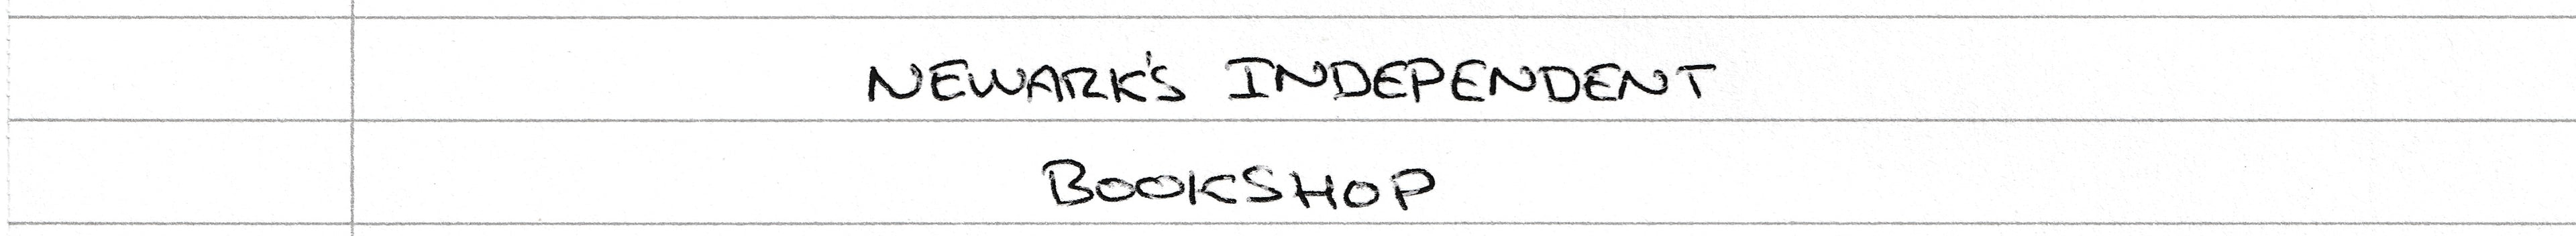 NEWARK'S INDEPENDENT
BOOKSHOP